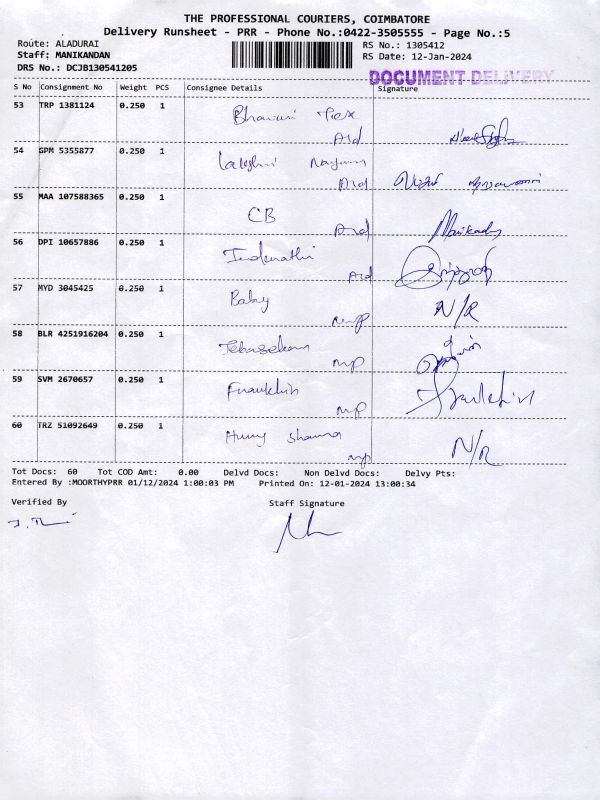 THE PROFESSIONAL COURIERS, COIMBATORE
Delivery Runsheet - PRR - Phone No.:0422-3505555 - Page No.:5
Route: ALADURAI RS No.: 1305412
Staff: MANIKANDAN RS Date: 12-Jan-2024
DRS No.: DCJB130541205
DOCUMENT DELIVERY
S No Consignment No Weight PCS Consignee Details Signature
53 TRP 1381124 0.250 1 Bhavani Tex
Ald
54 GPM 5355877 0.250 1 Lakshmi
Ald
55 MAA 107588365 0.250 1 CB
Ald Manikandan
56 DPI 10657886 0.250 1 Indumathi
Ald
57 MYD 3045425 0.250 1 Baby N/R
mp
58 BLR 4251916204 0.250 1
mp
59 SVM 2670657 0.250 1 Franklin Franklin
mp
60 TRZ 51092649 0.250 1 Sharma N/R
mp
Tot Docs: 60 Tot COD Amt: 0.00 Delvd Docs: Non Delvd Docs: Delvy Pts:
Entered By :MOORTHYPRR 01/12/2024 1:00:03 PM Printed On: 12-01-2024 13:00:34
Verified By Staff Signature